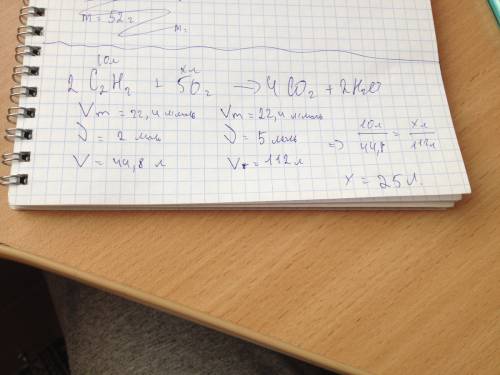 m = 52 г
m.
10л хл
2 C₂H₂ + 5O₂ → 4CO₂ + 2H₂O
Vm = 22,4 л/моль Vm = 22,4 л/моль
ν = 2 моль ν = 5 моль ⇒ 10л/44,8 = хл/112л
V = 44,8 л V = 112 л
x = 25 л.